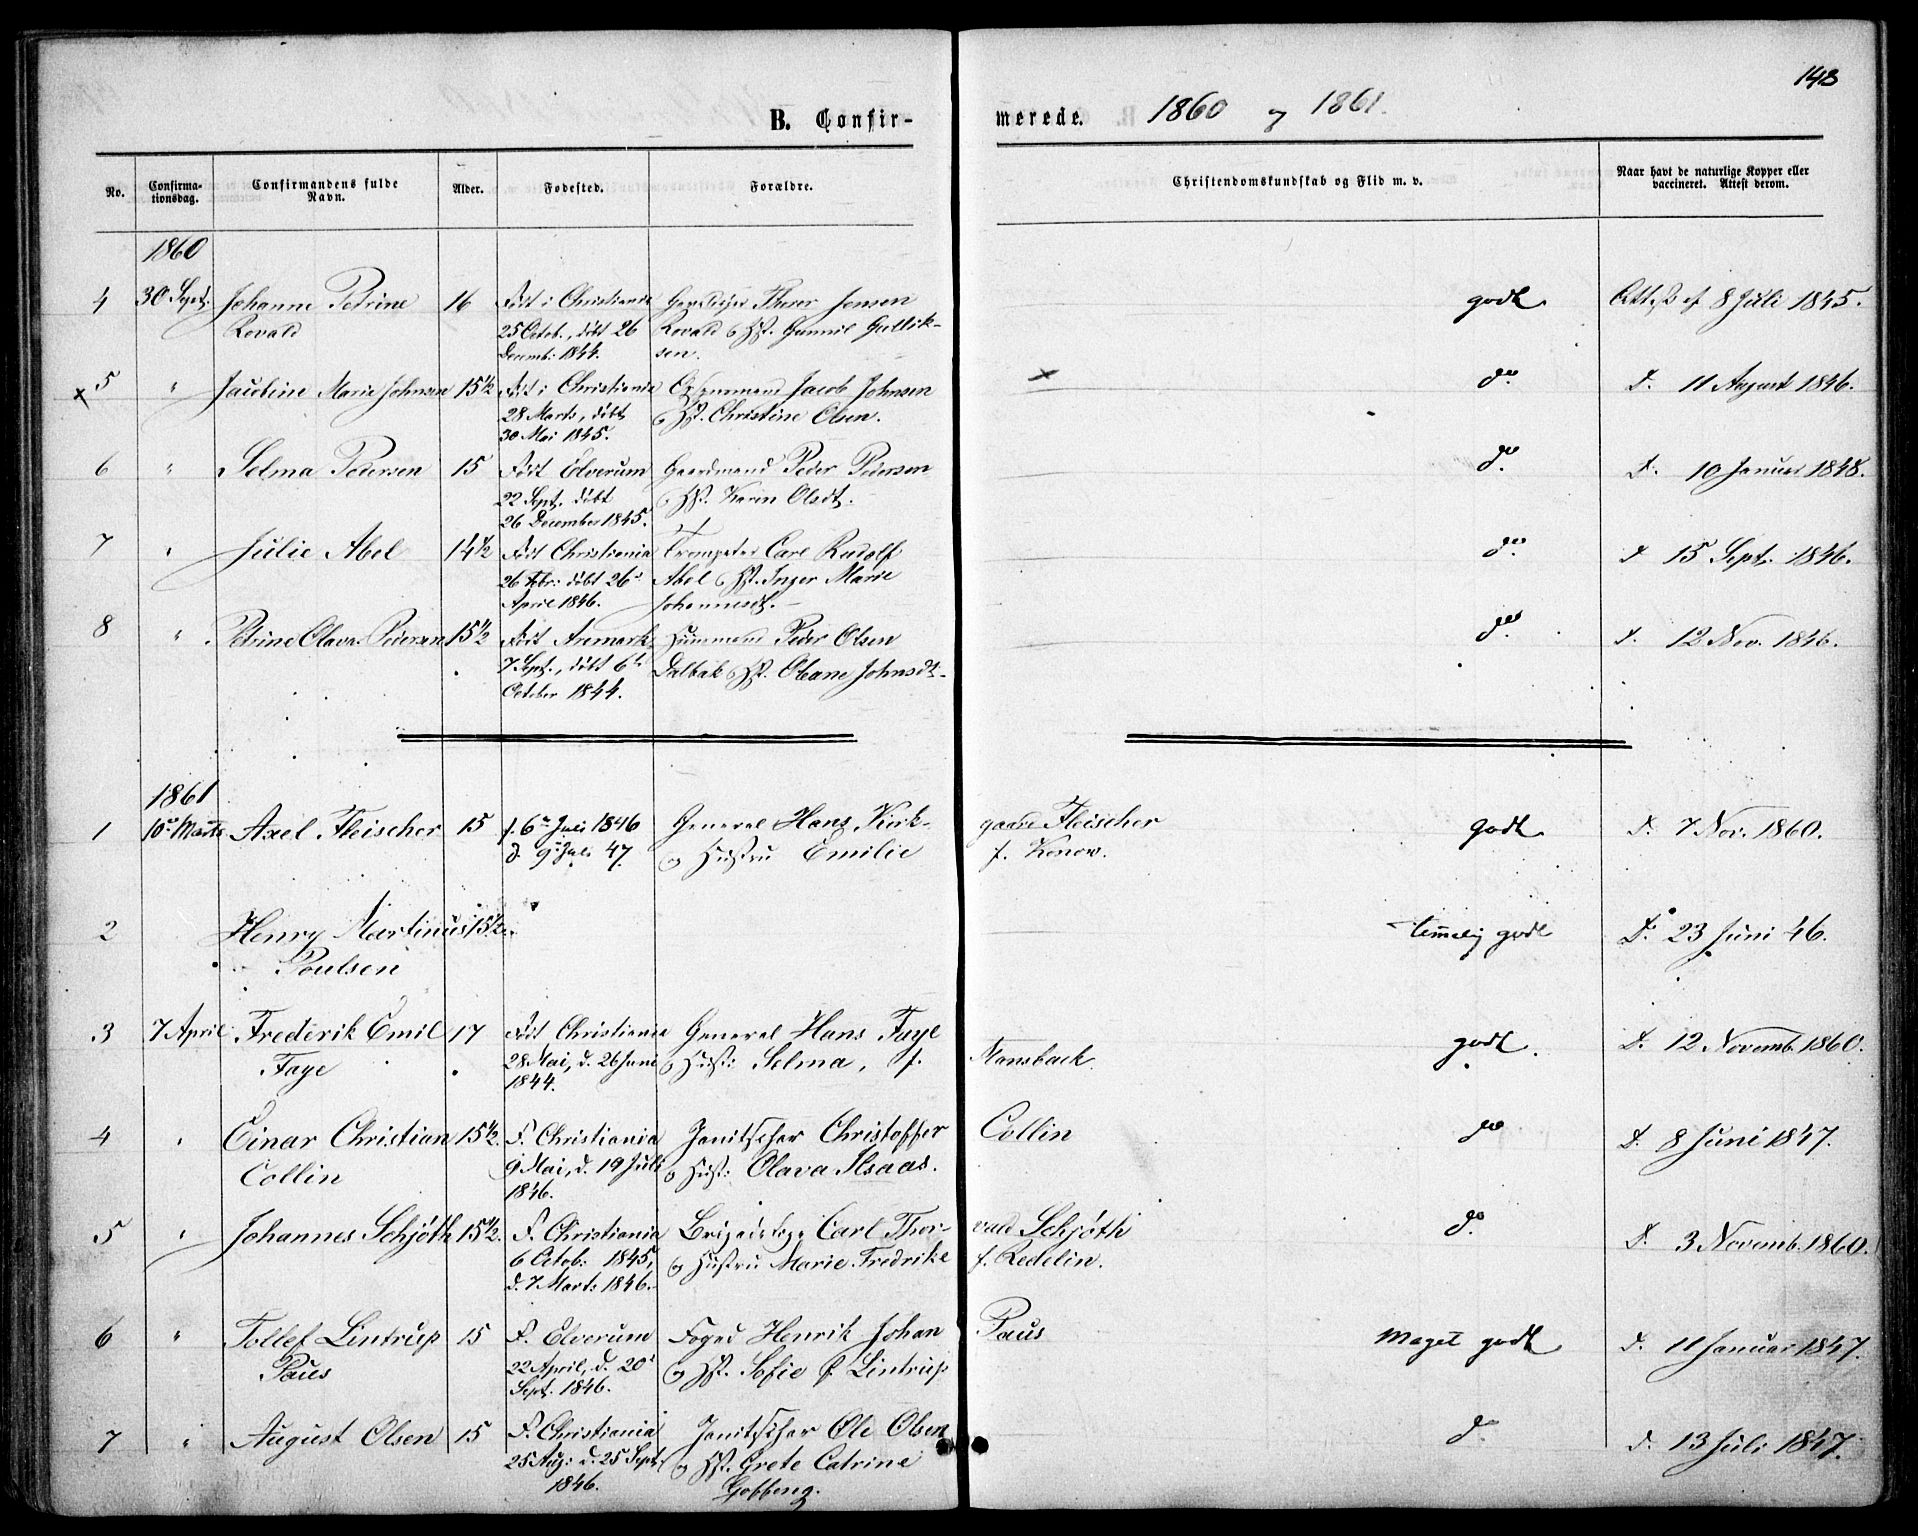 143
B. Confir-
merede. 1860 og 1861.
No.
Confirma-
tionsdag.
Confirmandens fulde
Navn.
Alder.
Fødested.
Forældre.
Christendomskundskab og Flid m. v.
Naar havt de naturlige Kopper eller
vaccineret. Attest derom.
1860
4 30 Sept. Johanne Petrine 16 Født i Christiania Threr Jensen godt. Attest af 8 Juli 1845.
Rovald 25 Octob., døbt 26 Rovald og Hst. Gunnil Gullik-
Decemb: 1844. sen.
x 5 " Jacobine Marie Johnsen 15½ Født i Christiania Jacob Johnsen x do D. 11 August 1846.
28 Marts, døbt og Hst. Christine Olsen.
30 Mai 1845.
6 " Selma Pedersen 15 Født Elverum Gaardmand Peder Pedersen do D. 10 Januar 1848.
22 Sept. døbt og Hst. Karen Olsdt.
26 December 1845.
7 " Julie Abel 14½ Født Christiania Trompeter Carl Rudolf do D 15 Sept. 1846.
26 Febr: døbt 26de Abel og Hst. Inger Marie
April 1846. Johannesdt.
8 " Petrine Olava Pedersen 15½ Født Aremark Huusmand Peder Olsen do D. 12 Nov. 1846.
7 Sept., døbt 6te Dalbak og Hst. Oleane Johnsdt.
October 1844.
1861
1 10de Marts Axel Fleischer 15 f. 6te Juli 1846 General Hans Kirk- gaard Fleischer Godt D. 7 Nov. 1860.
d. 9de Juli 47. og Hustru Emilie f. Konow.
2 Henry Martinus 15½ temmelig godt D. 23 Juni 46.
Poulsen
3 7 April Frederik Emil 17 Født Christiania General Hans Faye godt. D. 12 Novemb. 1860.
Faye 28 Mai, d. 26 Juni og Hust: Selma, f. Nansback
1844.
4 " Einar Christian 15½. F. Christiania Janitschar Christoffer Collin do D. 8 Juni 1847.
Collin 9 Mai, d. 19 Juli og Hust: Olava Isaas.
1846.
5 " Johannes Schjøth 15½. F. Christiania Brigadelæge Carl Thor- vald Schjøth do D. 3 Novemb. 1860.
6 Octob: 1845, og Hustru Marie Fredrike f. Zedelin.
d. 7 Marts 1846.
6 " Tollef Lintrup 15 F. Elverum Foged Henrik Johan Paus Meget godt D. 11 Januar 1847.
Paus 22 April, d. 20de og Hst. Sofie f. Lintrup
Sept. 1846.
7 " August Olsen 15 F. Christiania Janitschar Ole Olsen do D. 13 Juli 1847.
25 Aug: d. 25 Sept. og Hst. Grete Catrine
1846.